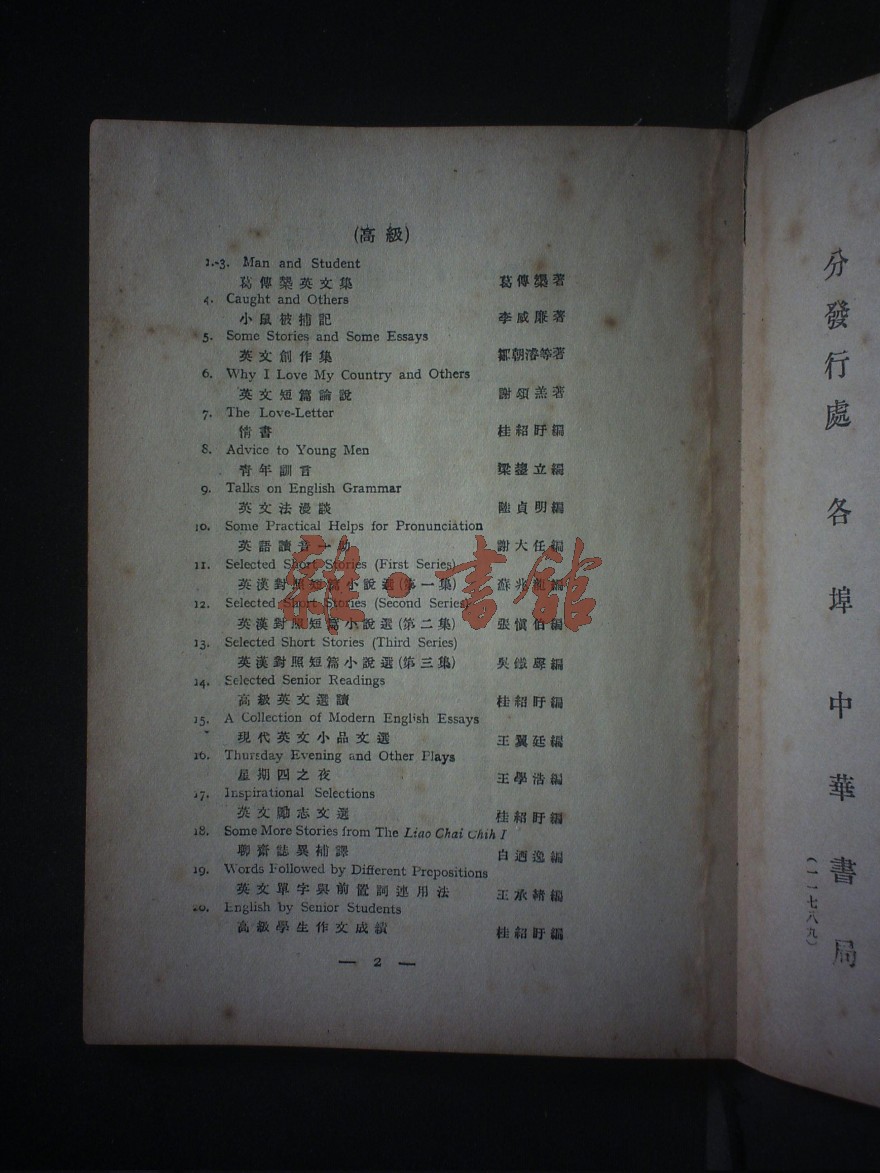 (高級)
1.-3. Man and Student
葛傳槼英文集 葛傳槼著
4. Caught and Others
小鼠被捕記 李威廉著
5. Some Stories and Some Essays
英文創作集 鄒朝濬等著
6. Why I Love My Country and Others
英文短篇論說 謝頌羔著
7. The Love-Letter
情書 桂紹盱編
8. Advice to Young Men
青年訓言 梁鋆立編
9. Talks on English Grammar
英文法漫談 陸貞明編
10. Some Practical Helps for Pronunciation
英語讀音一助 謝大任編
11. Selected Short Stories (First Series)
英漢對照短篇小說選(第一集) 蘇兆龍編
12. Selected Short Stories (Second Series)
英漢對照短篇小說選(第二集) 張愼伯編
13. Selected Short Stories (Third Series)
英漢對照短篇小說選(第三集) 吳鐵聲編
14. Selected Senior Readings
高級英文選讀 桂紹盱編
15. A Collection of Modern English Essays
現代英文小品文選 王翼廷編
16. Thursday Evening and Other Plays
星期四之夜 王學浩編
17. Inspirational Selections
英文勵志文選 桂紹盱編
18. Some More Stories from The Liao Chai Chih I
聊齋誌異補譯 白迺逸編
19. Words Followed by Different Prepositions
英文單字與前置詞連用法 王承緒編
20. English by Senior Students
高級學生作文成績 桂紹盱編
— 2 —
分發行處 各埠中華書局
(一一七八九)
雜·書館